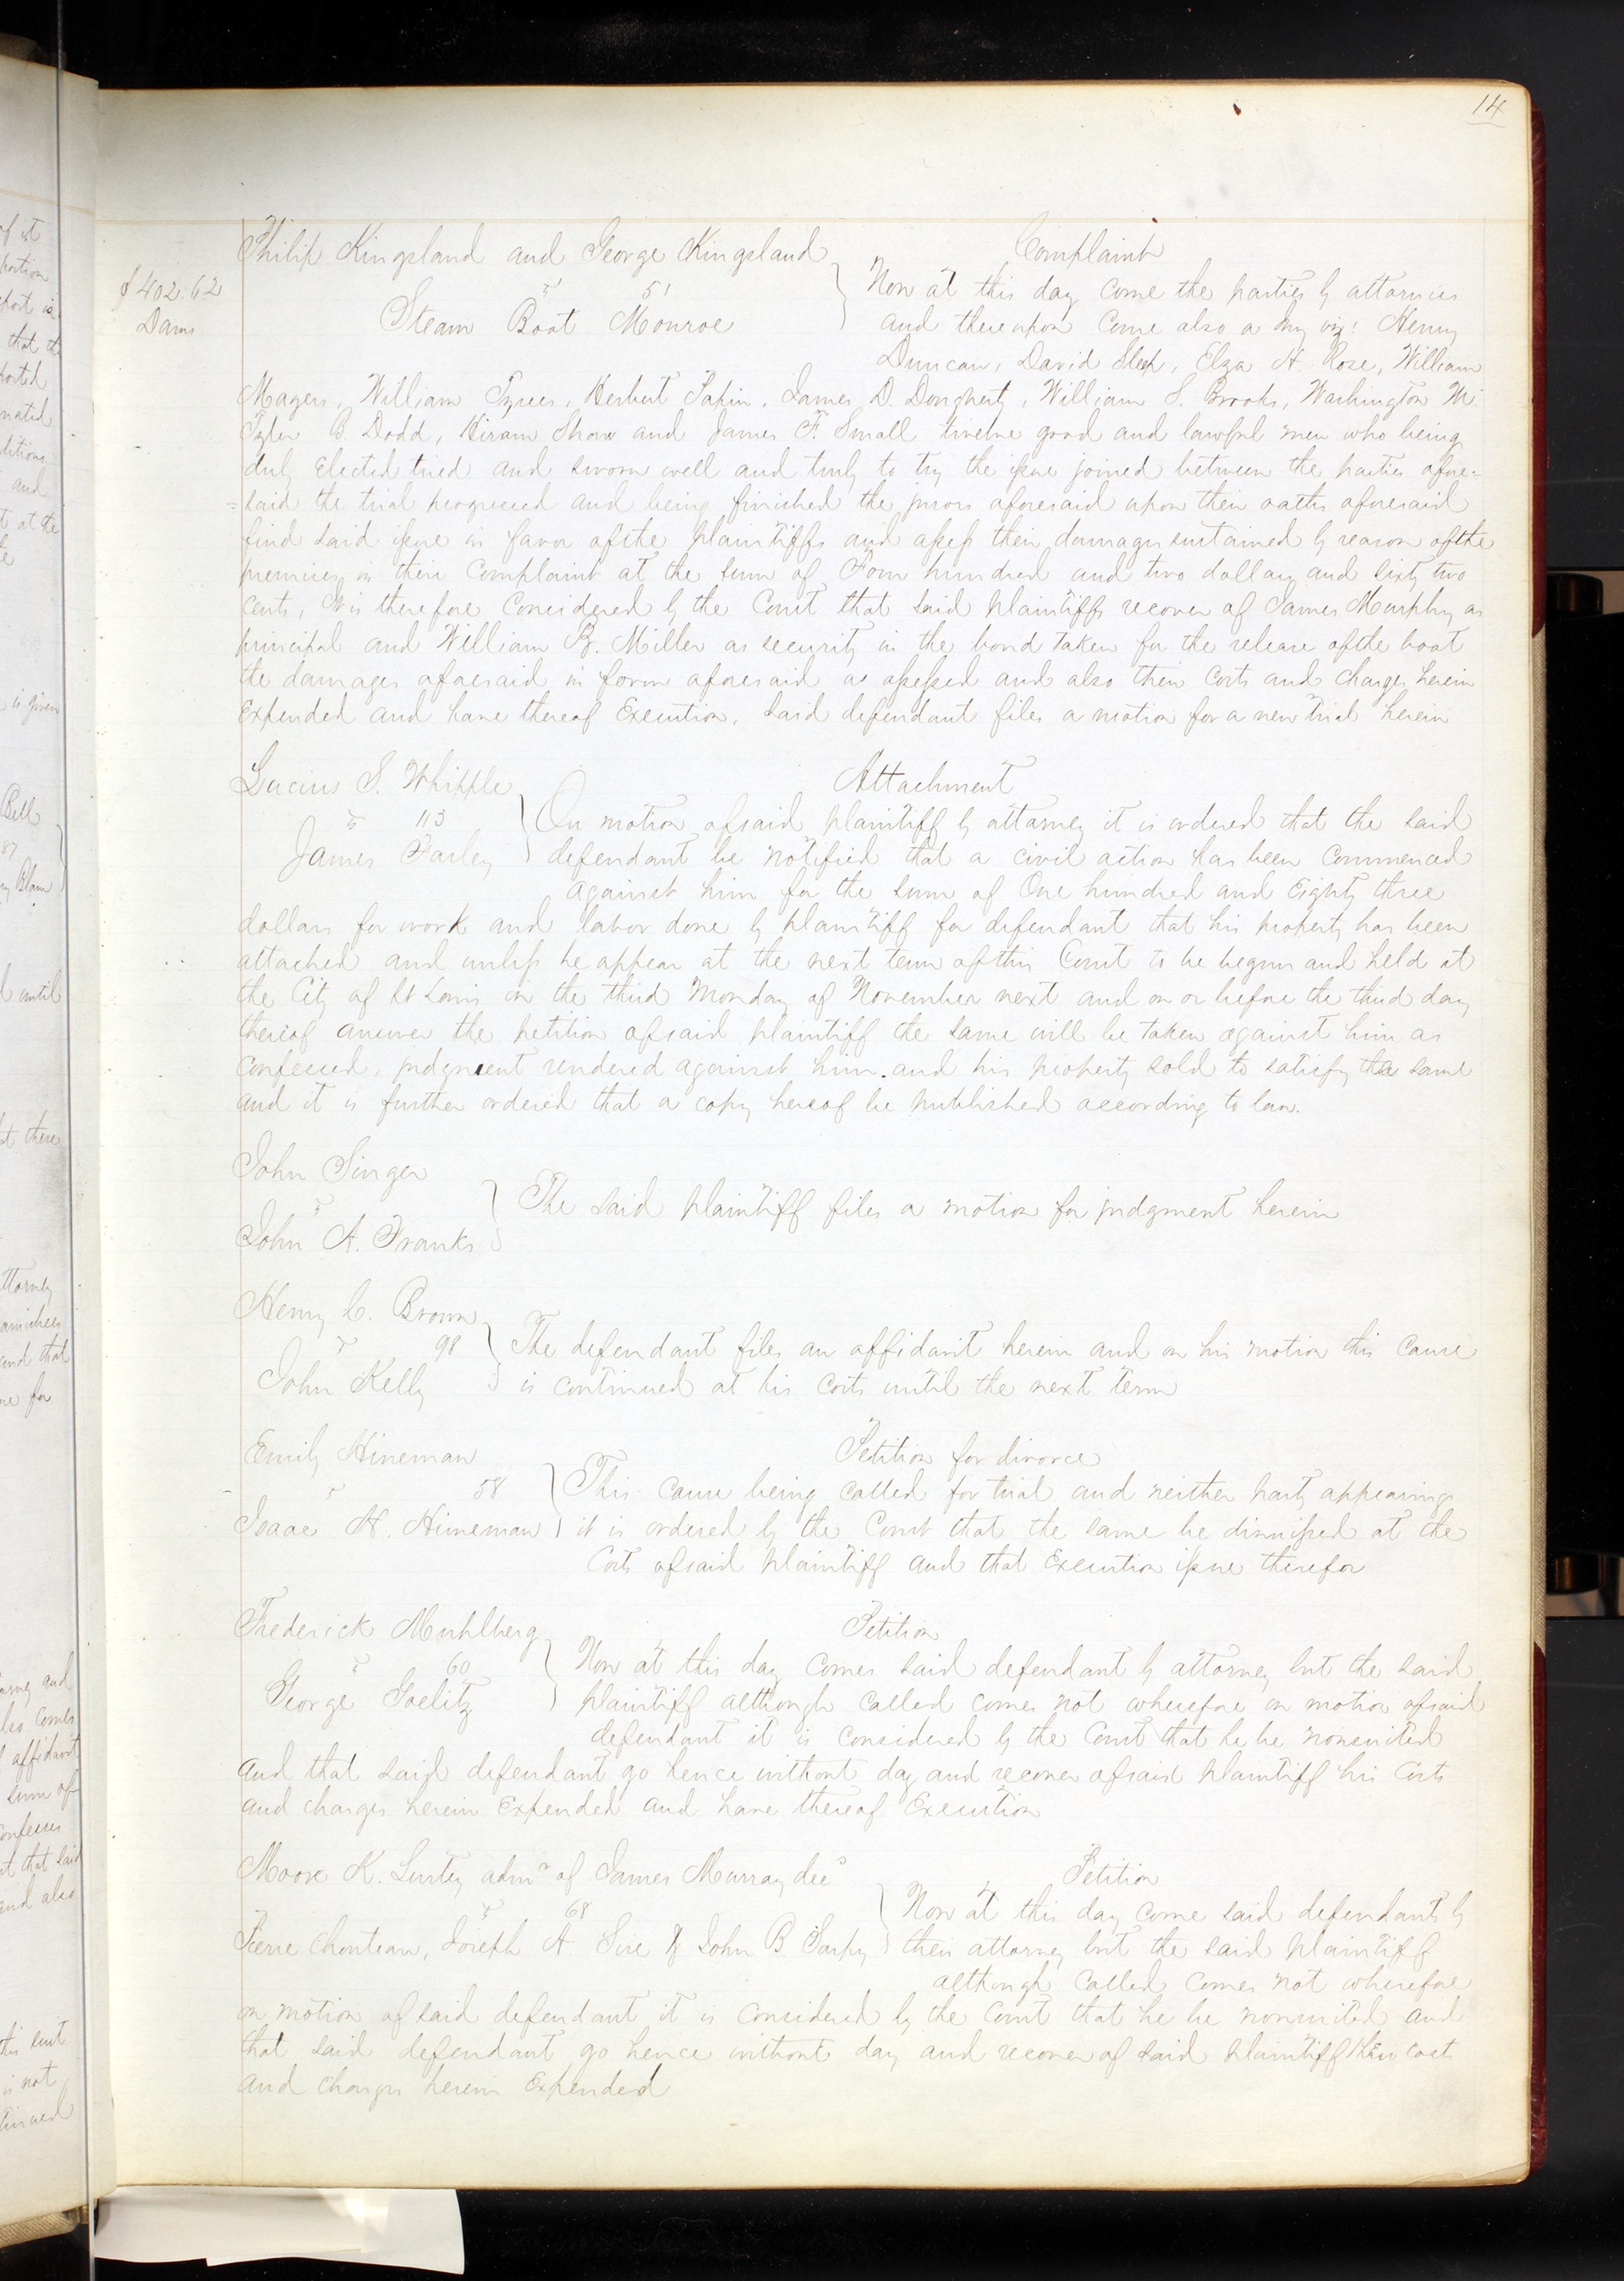 14
Philip Kingsland and George Kingsland
Complaint
$402.62
Dams
vs 51
Steam Boat Monroe
Now at this day come the parties by attornies
and thereupon come also a jury viz: Henry
Duncan, David Sleep, Elza H. Rose, William
Magers, William Tyrees, Herbert Papin, James D. Dougherty, William S. Brooks, Washington M.
Tyler B. Dodd, Hiram Shaw and James F. Small twelve good and lawful men who being
duly Elected tried and sworn well and truly to try the issue joined between the parties afore=
=said the trial progressed and being finished the jurors aforesaid upon their oaths aforesaid
find said issue in favor of the plaintiffs and assess their damages sustained by reason of the
premises in their Complaint at the sum of Four hundred and two dollars and sixty two
cents, It is therefore Considered by the Court that said plaintiffs recover of James Murphy as
principal and William B. Miller as security in the bond taken for the release of the boat
the damages aforesaid in form aforesaid as assessed and also their Costs and Charges herein
Expended and have thereof Execution. Said defendant files a motion for a new trial herein
Lucius S. Whipple
Attachment
vs 113
James Farley
On motion of said plaintiff by attorney it is ordered that the said
defendant be notified that a civil action has been Commenced
against him for the sum of One hundred and Eighty three
dollars for work and labor done by plaintiff for defendant that his property has been
attached and unless he appear at the next term of this Court to be begun and held at
the City of St Louis on the third Monday of November next and on or before the third day
thereof answer the petition of said plaintiff the same will be taken against him as
Confessed, judgment rendered against him. and his property sold to satisfy the same
and it is further ordered that a copy hereof be published according to law.
John Singer
vs
John A. Franks
The said plaintiff files a motion for judgment herein
Henry C. Brown
vs 98
John Kelly
The defendant files an affidavit herein and on his motion this cause
is continued at his costs until the next term
Emily Hineman
Petition for divorce
vs 58
Isaac H. Hineman
This cause being called for trial and neither party appearing
it is ordered by the Court that the same be dismissed at the
Costs of said plaintiff and that Execution issue therefor
Frederick Muhlberg
Petition
vs 60
George Goelitz
Now at this day comes said defendant by attorney but the said
plaintiff although called comes not wherefore on motion of said
defendant it is considered by the Court that he be nonsuited
and that said defendant go hence without day and recover of said plaintiff his Costs
and charges herein Expended and have thereof Execution
Moore K. Lurty admr of James Murray decd
Petition
vs 68
Pierre Chouteau, Joseph A Sire & John B Sarpy
Now at this day come said defendants by
their attorney but the said plaintiff
although called comes not wherefore
on motion of said defendant it is considered by the Court that he be nonsuited and
that said defendant go hence without day and recover of said plaintiff their costs
and charges herein Expended